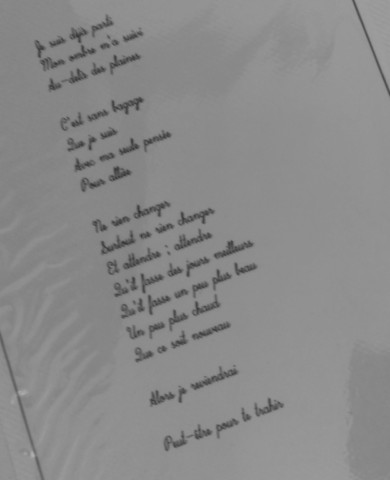 Je suis déjà parti
Mon ombre m'a suivi
Au-delà des plaines
C'est sans bagage
Que je suis
Avec ma seule pensée
Pour alliée
Ne rien changer
Surtout ne rien changer
Et attendre ; attendre
Qu'il fasse des jours meilleurs
Qu'il fasse un peu plus beau
Un peu plus chaud
Que ce soit nouveau
Alors je reviendrai
Peut-être pour te trahir